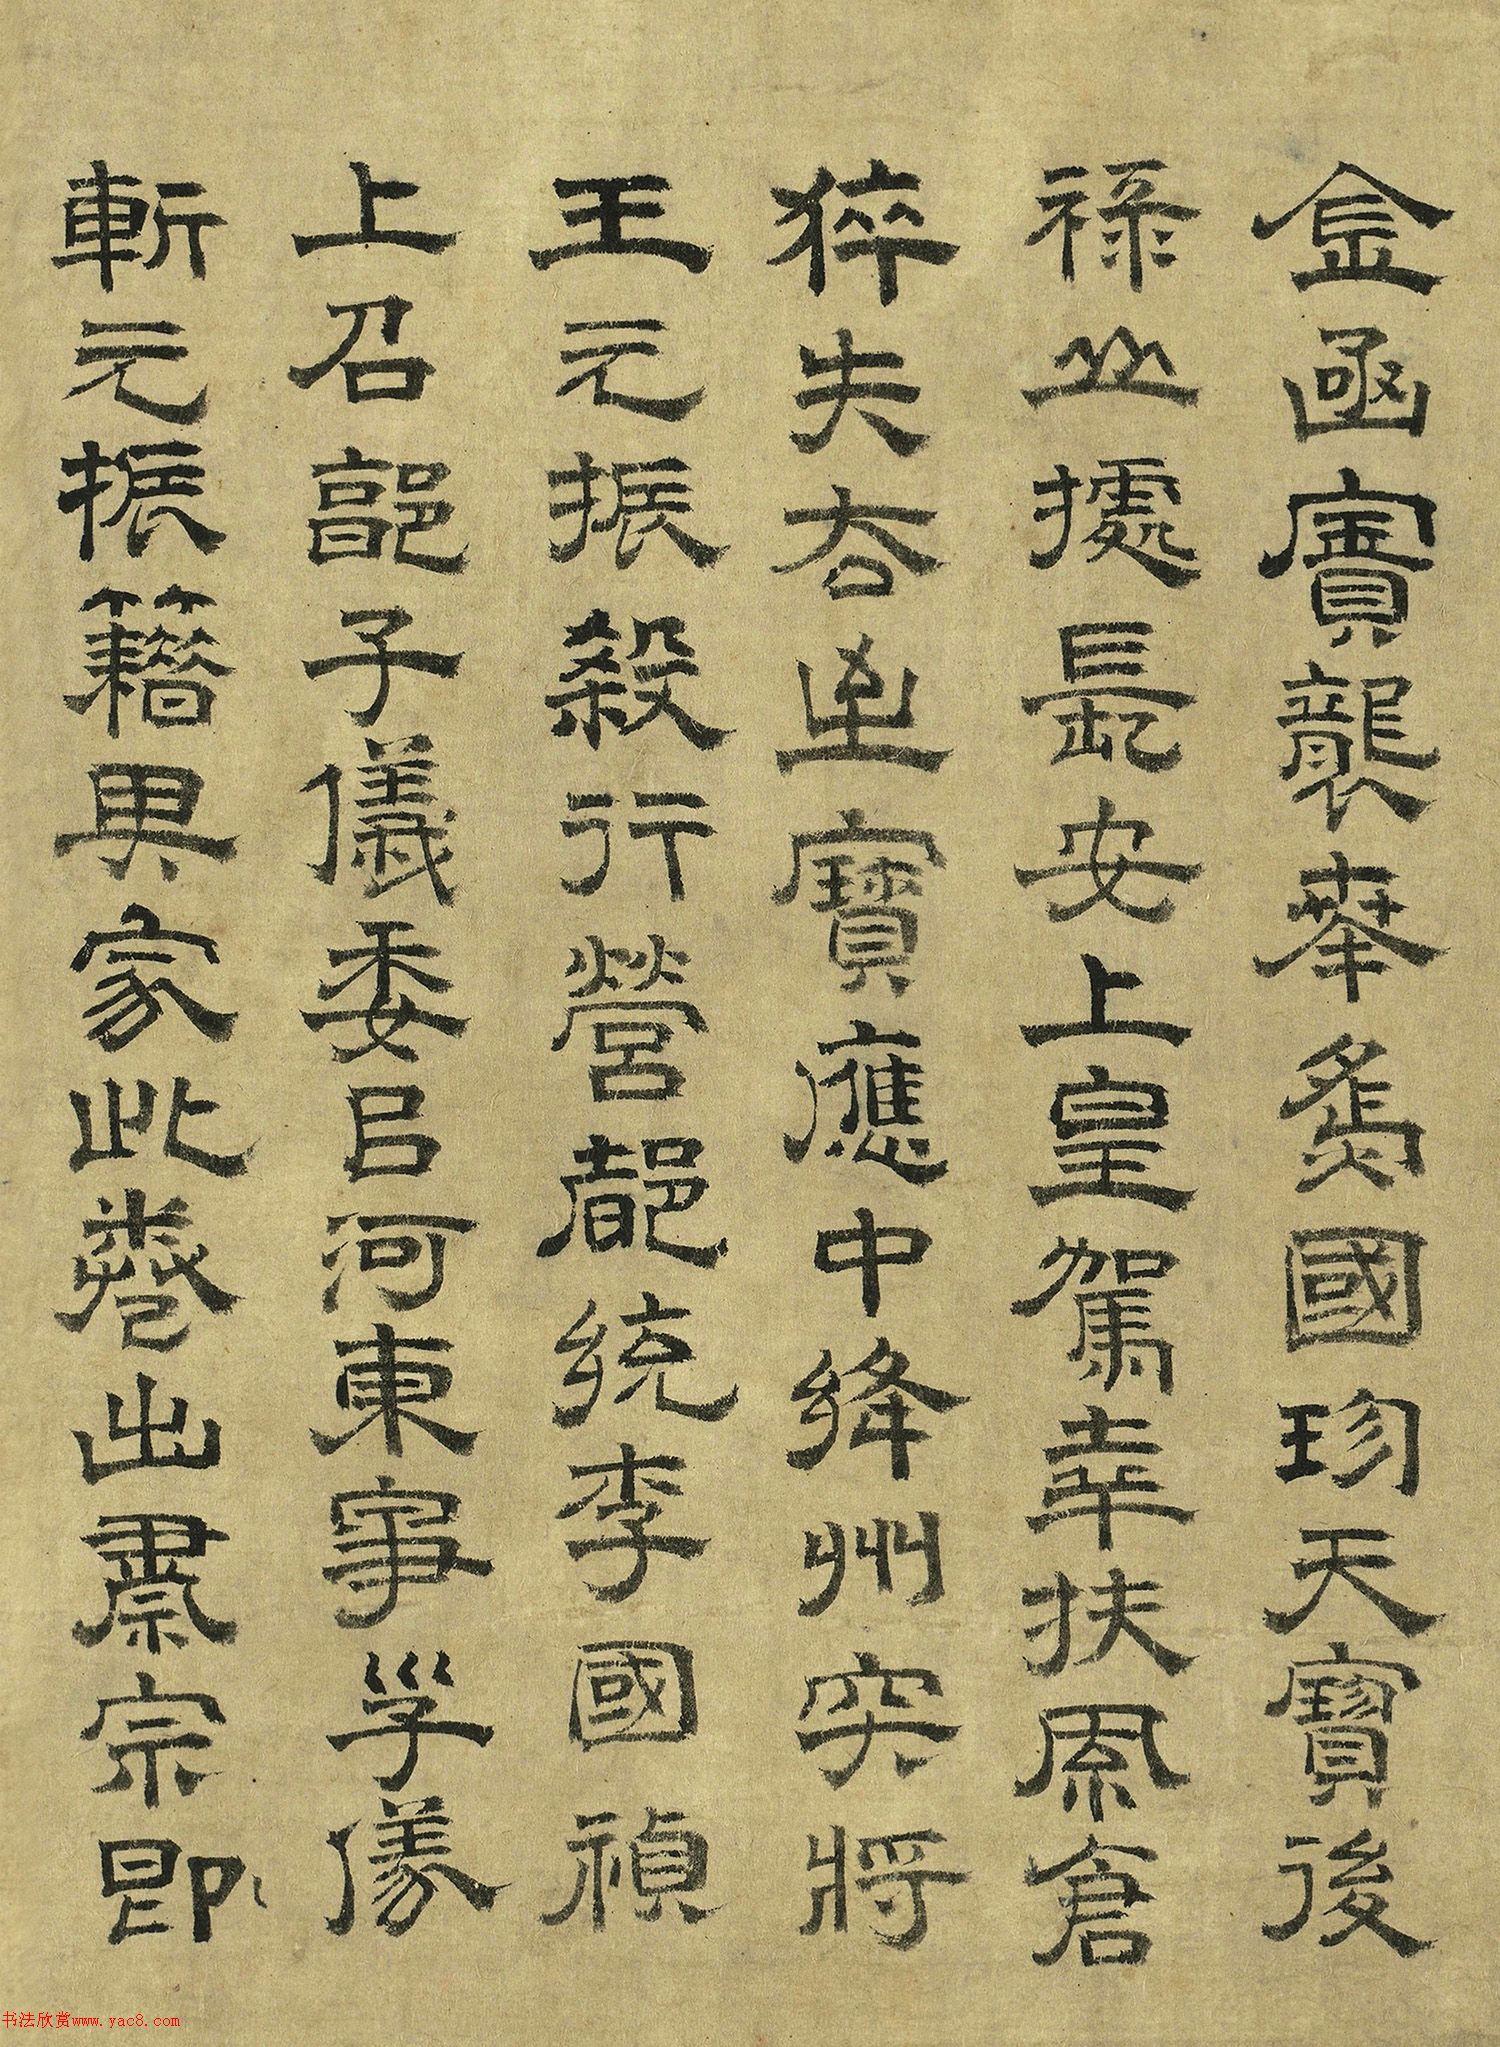 金函寶襲奉為國珍天寶後
祿山據長安上皇駕幸扶風倉
猝失去至寶應中絳州突將
王元振殺行營都統李國禎
上召郭子儀委以河東事子儀
斬元振籍其家此卷出肅宗即
书法欣赏www.yac8.com